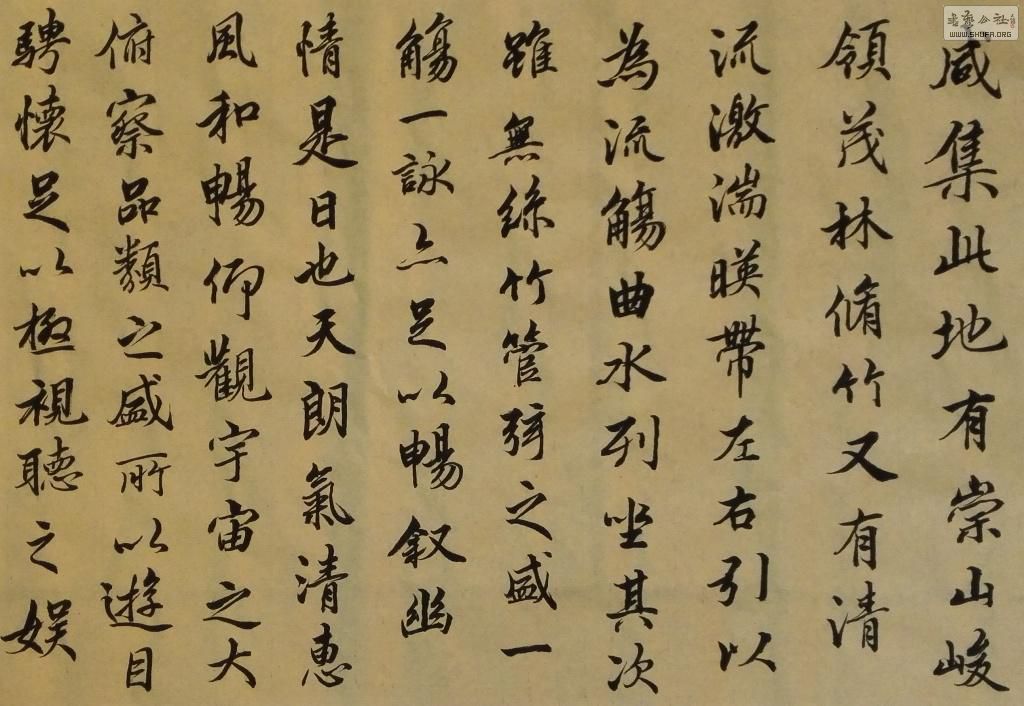 咸集此地有崇山峻
領茂林脩竹又有清
流激湍暎帶左右引以
為流觴曲水列坐其次
雖無絲竹管弦之盛一
觴一詠亦足以暢叙幽
情是日也天朗氣清惠
風和暢仰觀宇宙之大
俯察品類之盛所以遊目
騁懷足以極視聽之娱
书艺公社
WWW.SHUFA.ORG